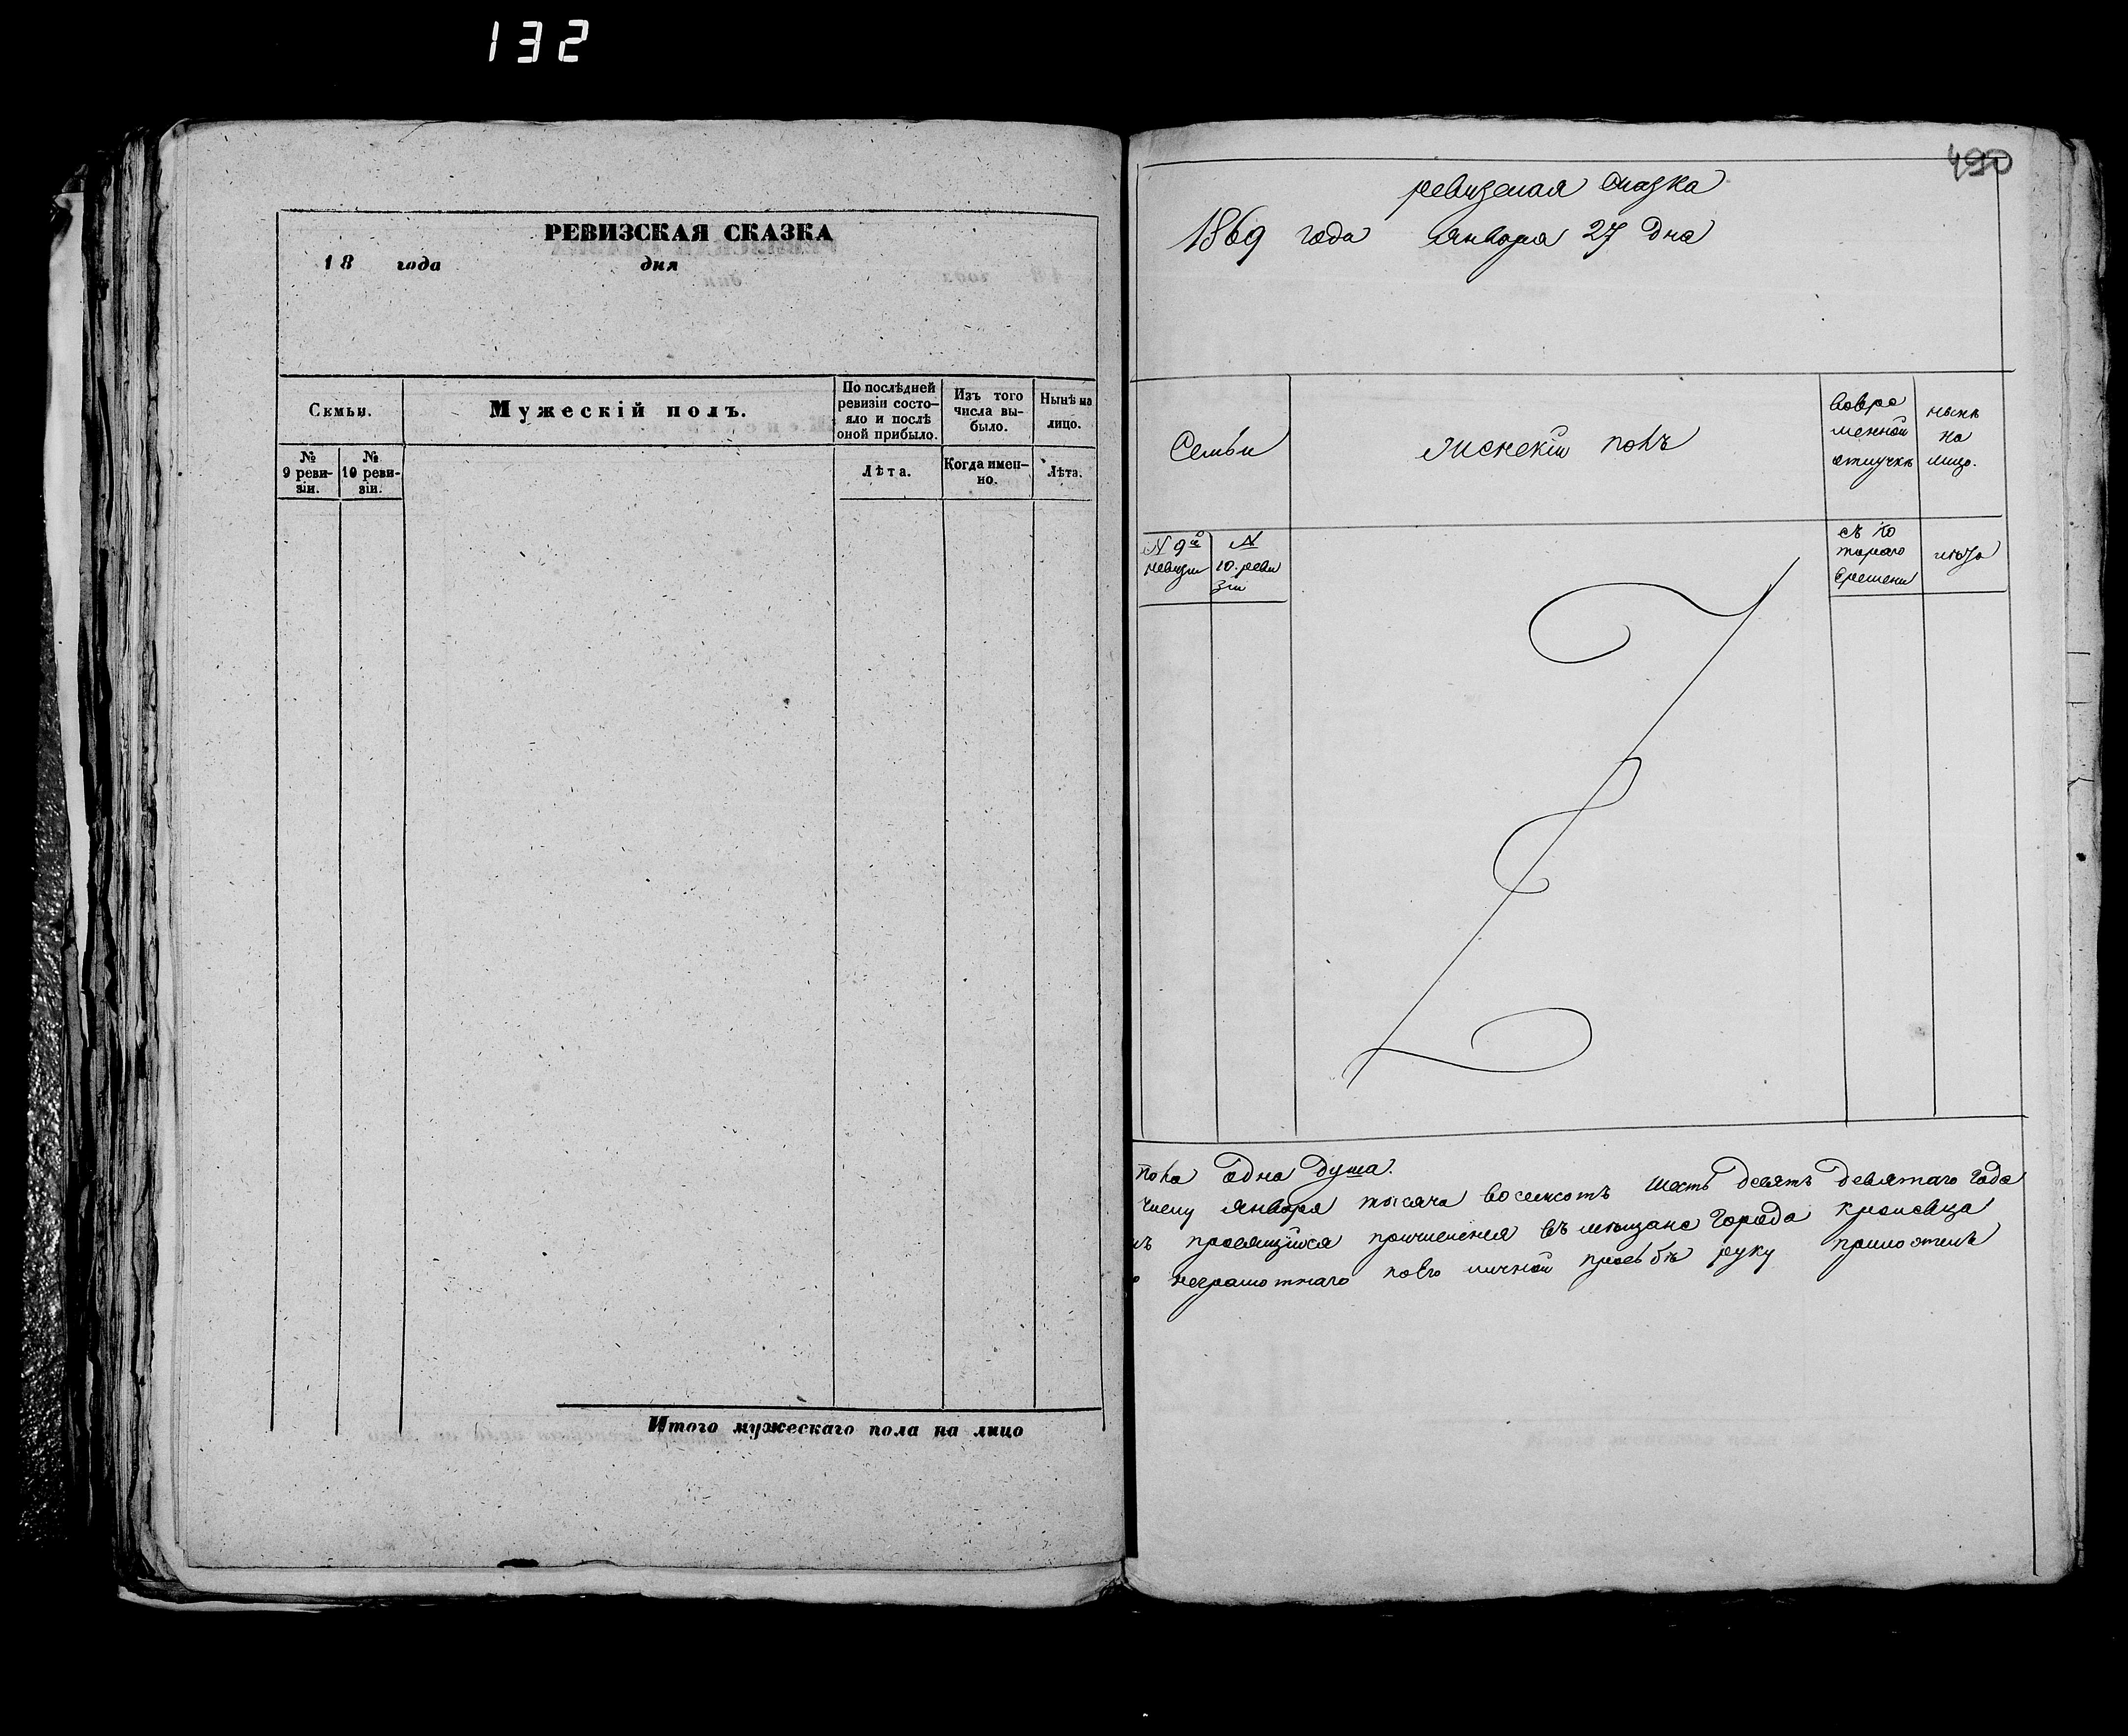 132
РЕВИЗСКАЯ СКАЗКА
18 года дня
Семьи.
Мужескій полъ.
По послѣдней
ревизіи состо-
яло и послѣ
оной прибыло.
Изъ того
числа вы-
было.
Нынѣ на
лицо.
№
9 реви-
зіи.
№
10 реви-
зіи.
Лѣта.
Когда имен-
но.
Лѣта.
Итого мужескаго пола на лицо
490
ревизская сказка
1869 года Января 27 дня
Семьи
Женскій полъ
Вовре
менной
отлучкѣ
нынѣ
на
лицо.
N 9й
ревизіи
N
10. реви
зіи
съ ко
тораго
времени
лѣта
пола одна душа.
Января тысяча восемсотъ шесть десятъ девятаго года
просящійся причисленія въ мѣщане города
неграмотнаго поего личной просьбѣ руку приложилъ